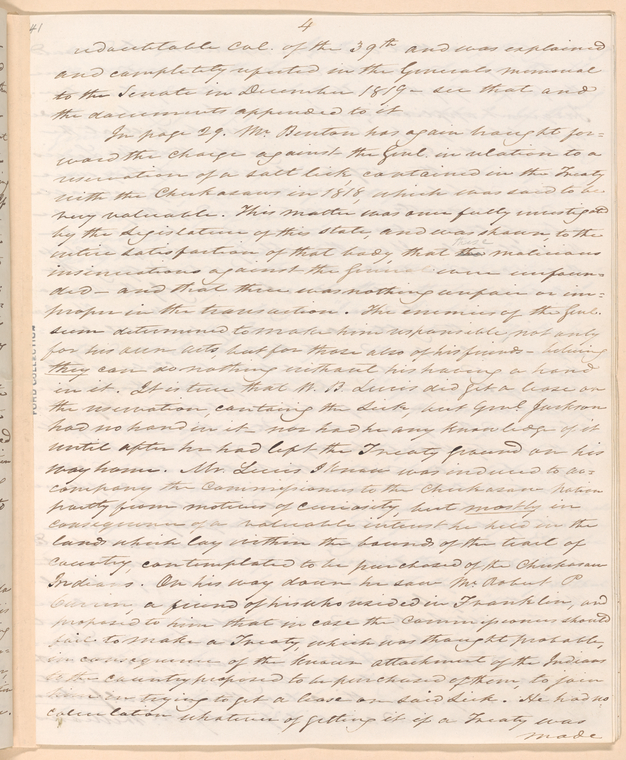 41
4
redoubtable Col. of the 39th and was explained
and completely refuted in the Generals memorial
to the Senate in December 1819 - see that and
the documents appended to it
In page 29. Mr Benton has again brought for=
ward the charge against the Genl. in relation to a
reservation of a salt lick, contained in the Treaty
with the Chickasaws in 1818, which was said to be
very valuable. This matter was once fully investigated
by the Legislature of this state, and was shown to the
entire satisfaction of that body that the malicious
insinuations against the General were unfoun=
ded - and that there was nothing unfair or im=
proper in the transaction. The enemies of the Genl.
seem determined to make him responsible, not only
for his own acts, but for those also of his friends - believing
they can do nothing without his having a hand
in it. It is true that W. B. Lewis did get a lease on
the reservation, containg the Lick, but Genl. Jackson
had no hand in it, nor had he any knowledge of it
until after he had left the Treaty ground on his
way home. Mr. Lewis I know was induced to ac=
company the Commissioners to the Chickasaw Nation
partly from motives of curiosity, but mostly in
consequence of a valuable interest he held in the
lands which lay within the bounds of the tract of
country, contemplated to be purchased of the Chickasaw
Indians. On his way down he saw Mr. Robert P
Currin, a friend of his who resided in Franklin, and
proposed to him that in case the Commissioners should
fail to make a Treaty, which was thought probable,
in consequence of the known attachment of the Indians
to the country proposed to be purchased of them, to join
him in trying to get a lease on said Lick. He had no
calculation whatever of getting it if a Treaty was
made
FORD COLLECTION